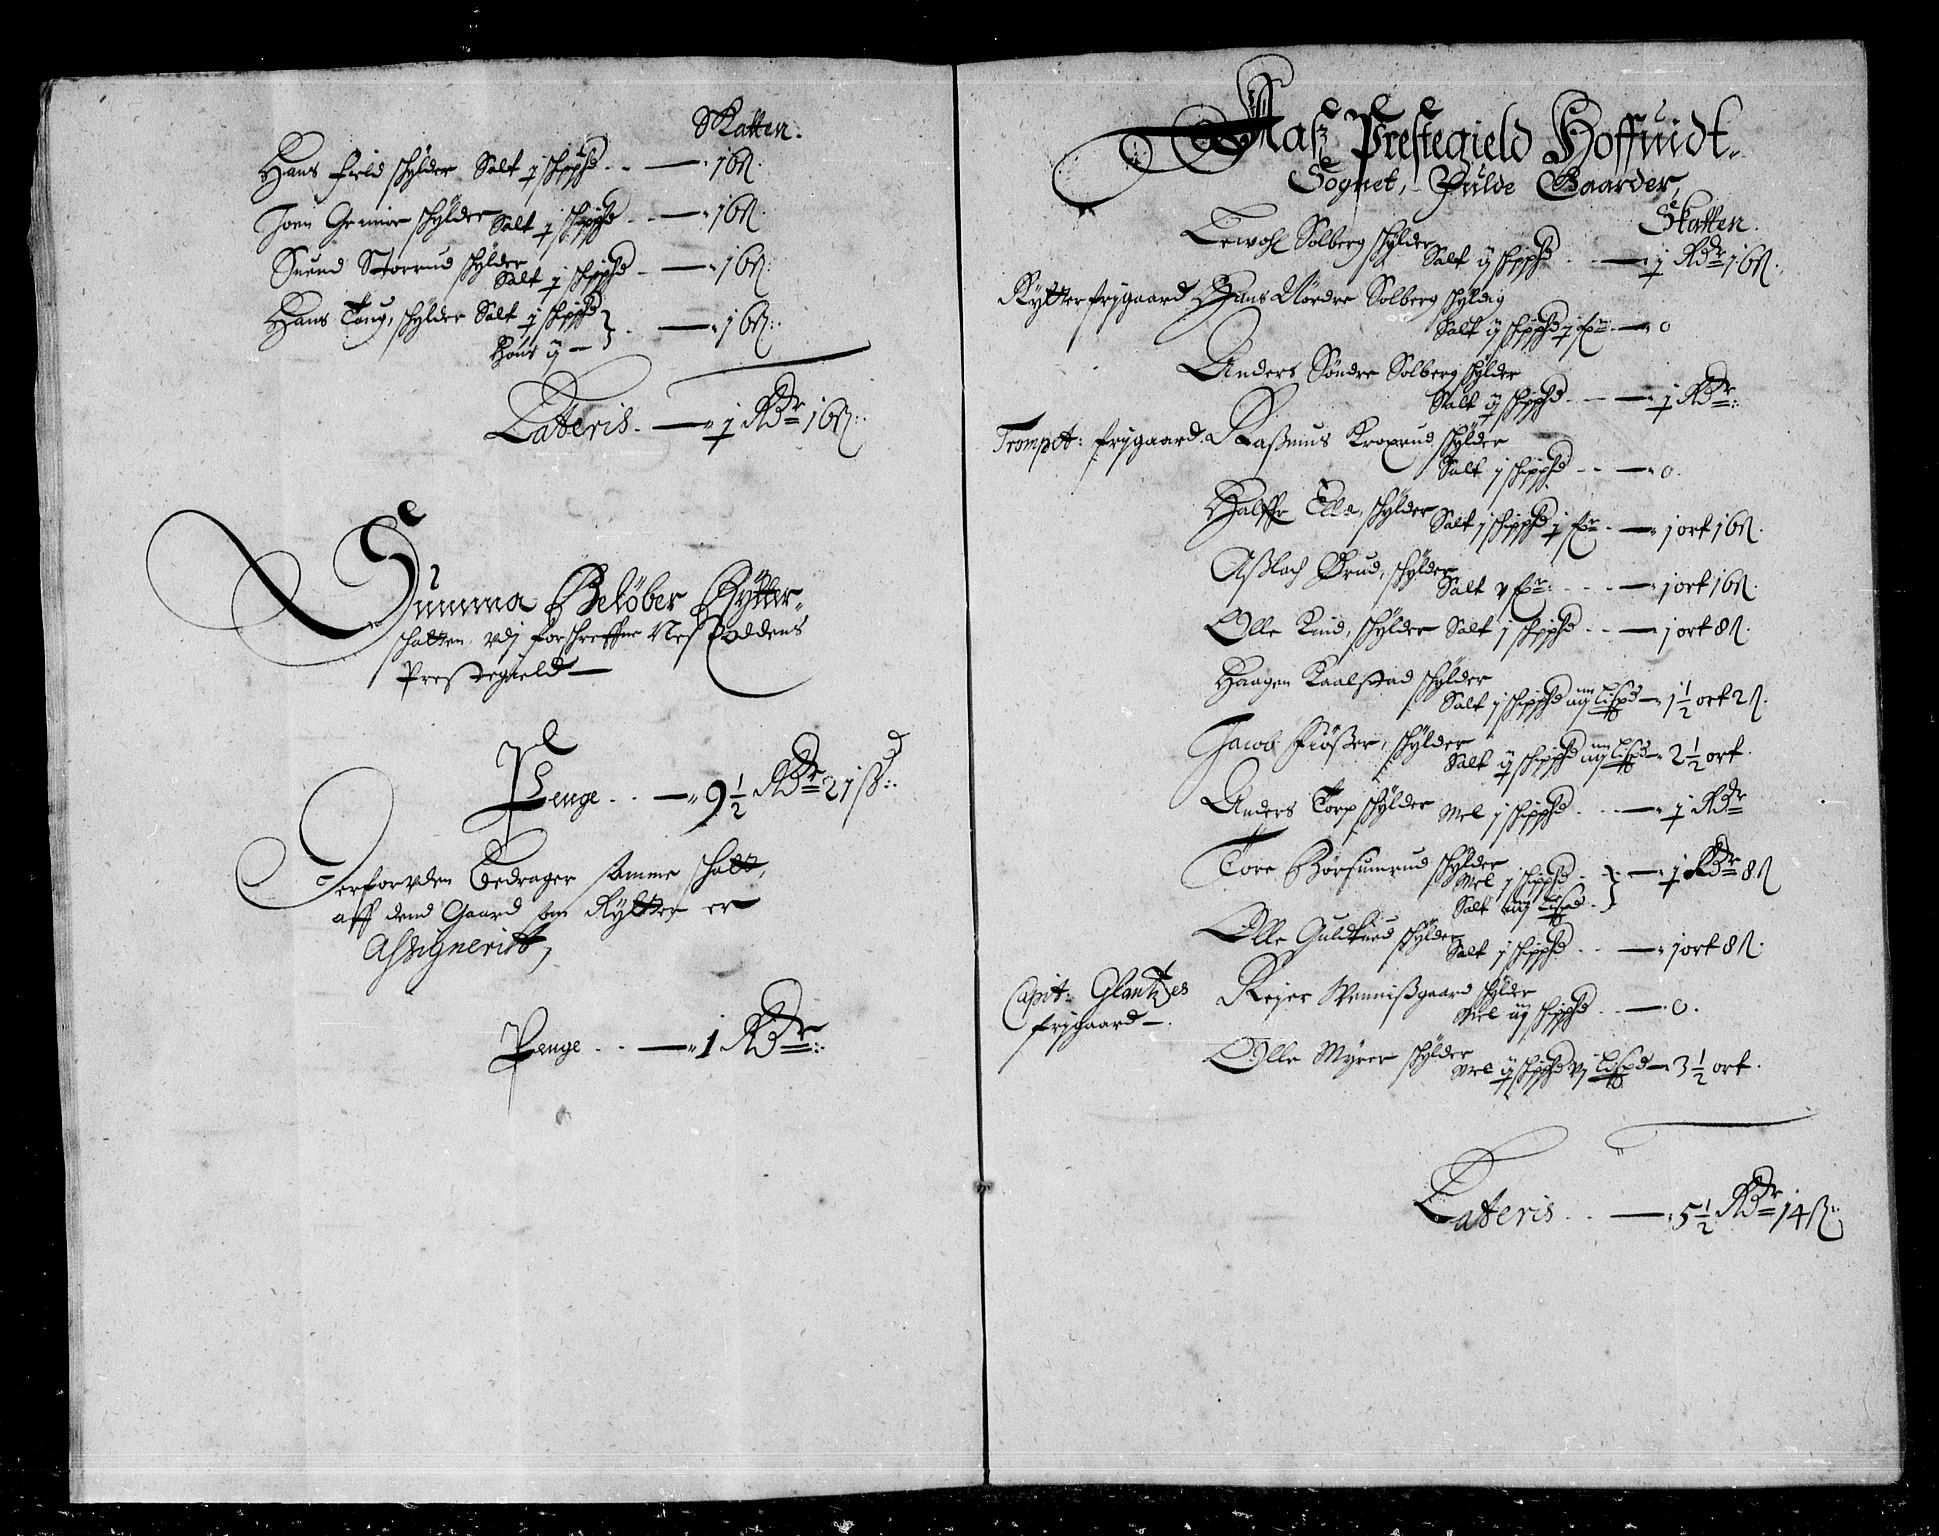 Skatten.
Hans Field schylder Salt ½ schippd - - — 16 ß.
Joen Grimior schylder
Salt ½ schippd - - — 16 ß.
Suend Storrud schylder
Salt ½ schippd - — 16 ß.
Hans Toug, schylder Salt ½ schippd
Høns ij — } - — 16 ß.
Lateris. — ½ Rdr 16 ß.
Summa Beløber Rytter-
schatten vdj forschreffne Nesoddens
Prestegield —
Penge - - — 9 1/2 Rdr 21 ß.
Derforvden bedrager samme schatt,
aff dend Gaard som Rytter er
Assignerit,
Penge - - — 1 Rdr.
Aass Prestegield Hoffuidt-
Sognet, Fulde Gaarder,
Skatten.
Solberg schylder
Salt schippd - - — ½ Rdr 16 ß.
Rytterfrygaard Hans Nordre Solberg schyldig
Salt schippd — 0
Anders Søndre Solberg schylder
Salt schippd - - — ½ Rdr
Trompet: frygaard. Rassmus Kroxrud schylder
Salt j schippd - - — 0.
Halffr Elle, schylder
Salt j schippd — 1 ort 16 ß.
Asslach Ørud, schylder
Salt - - — 1 ort 16 ß.
Olle schylder Salt j schippd - - — 1 ort 8 ß.
Haagen Kaalstad schylder
Salt j schippd iiij Lispd — 1 1/2 ort 2 ß.
Jacob schylder
Salt schippd iiij Lispd — 2 1/2 ort.
Anders Torp schylder Mel j schippd - - — ½ Rdr
Tore schylder
Mel j schippd -
Salt iiij Lispd - } — ½ Rdr 8 ß
Olle schylder
Salt j schippd - - — 1 ort 8 ß.
Capit: Glantzes Rejer schylder
frygaard —. Mel iij schippd - - — 0.
Olle Myrer schylder
Mel schippd vj Lispd — 3 1/2 ort.
Lateris - - — 5 1/2 Rdr 14 ß.